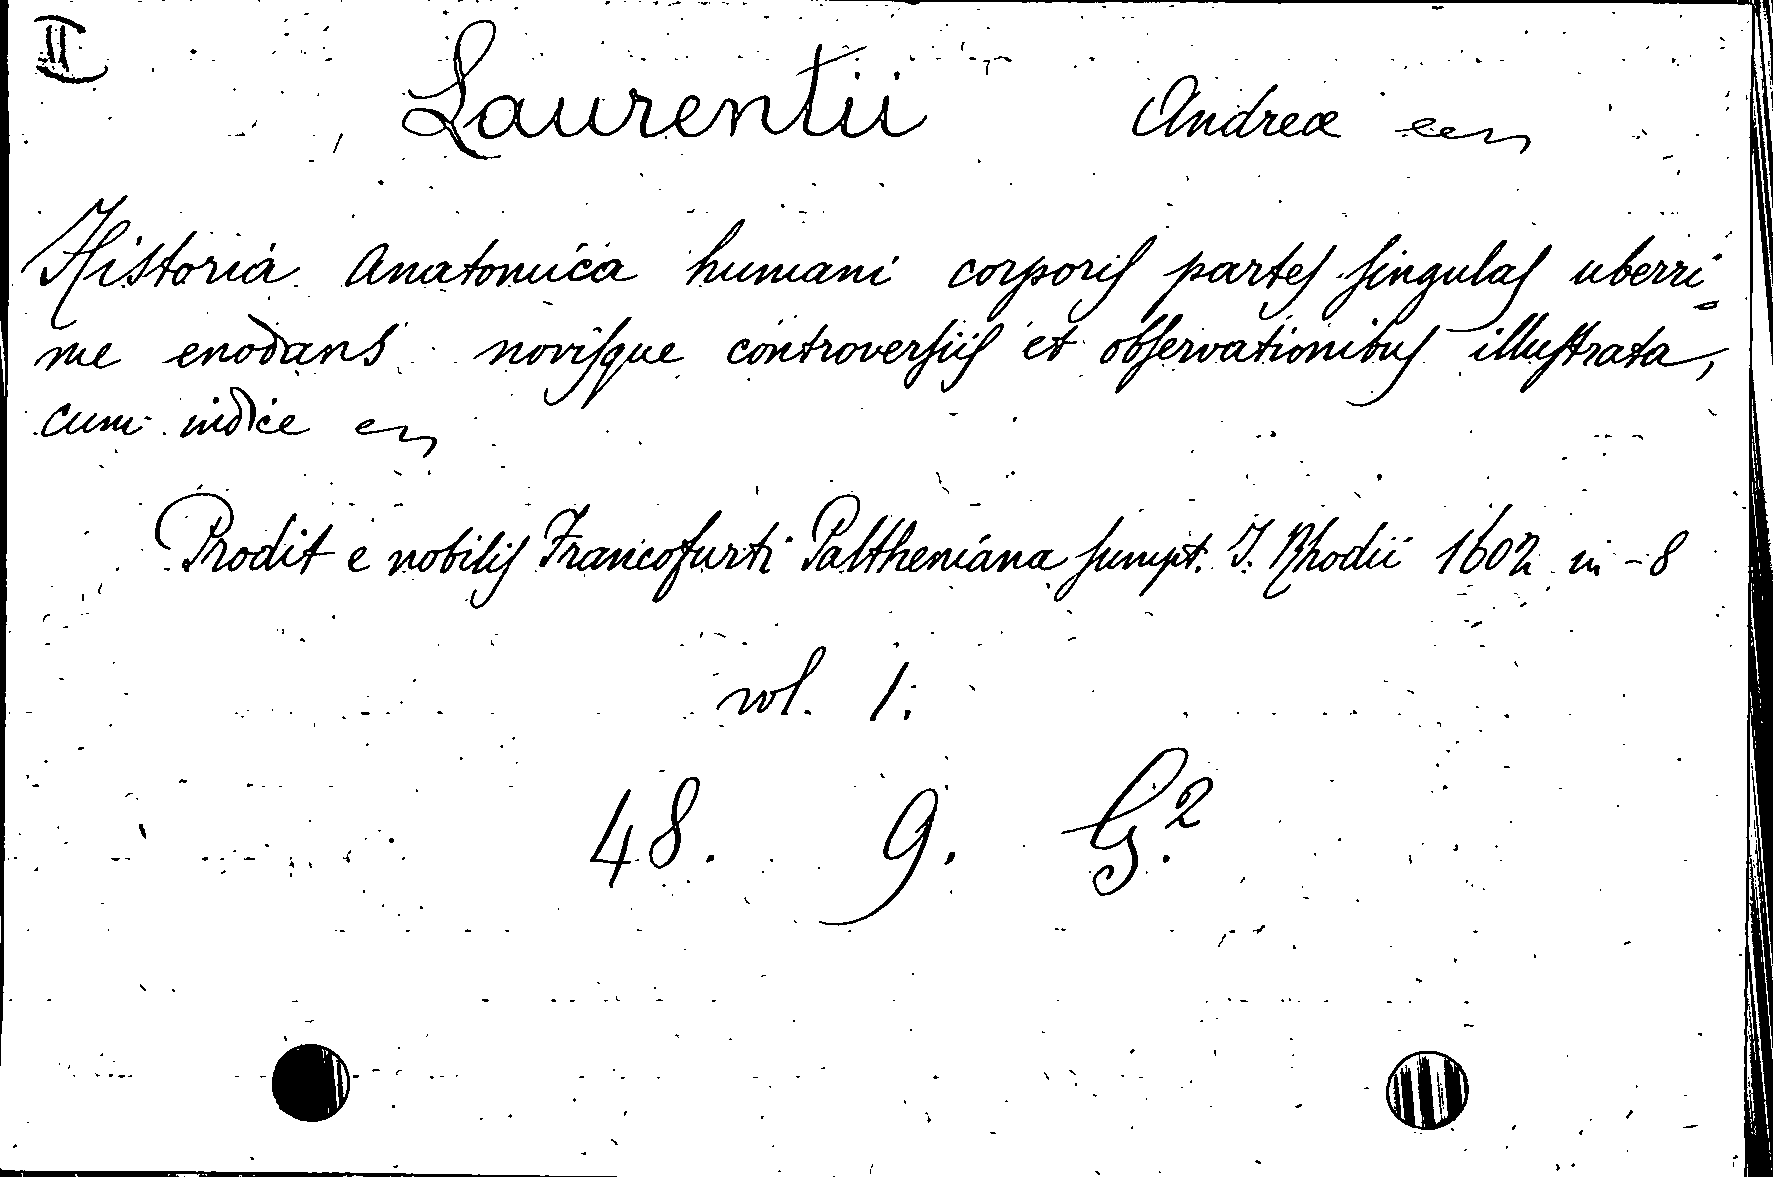 II
Laurentii Andreæ
Historia anatomica humani corporis partes singulas uberri=
me enodans novisque controversiis et observationibus illustrata,
cum indice
Prodit e nobilis Francofurti Paltheniana sumpt. J. Rhodii 1602 in-8
vol. 1.
48. 9. G.²